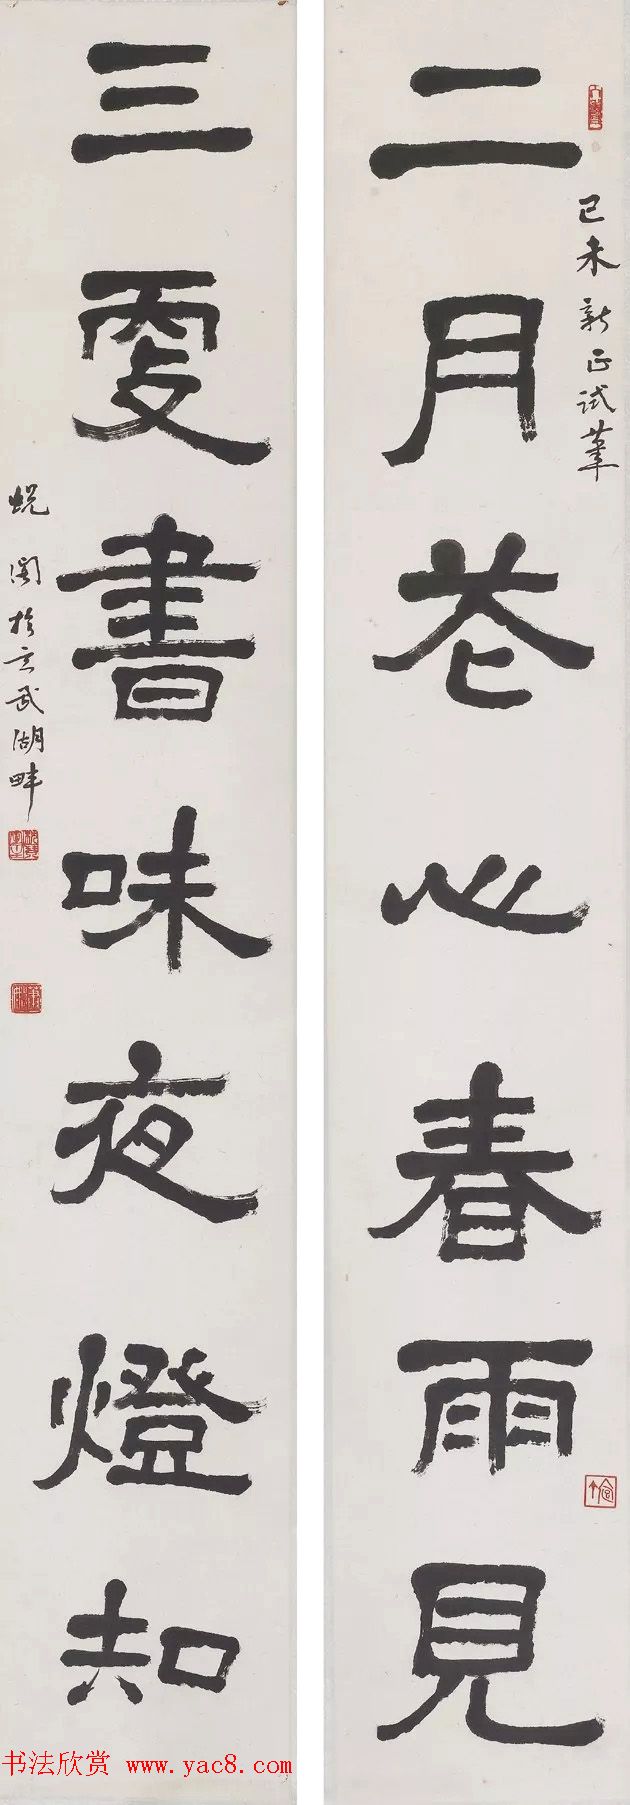 二月花心春雨見
己未新正試筆
三更書味夜燈知
蜕閣於玄武湖畔
书法欣赏 www.yac8.com